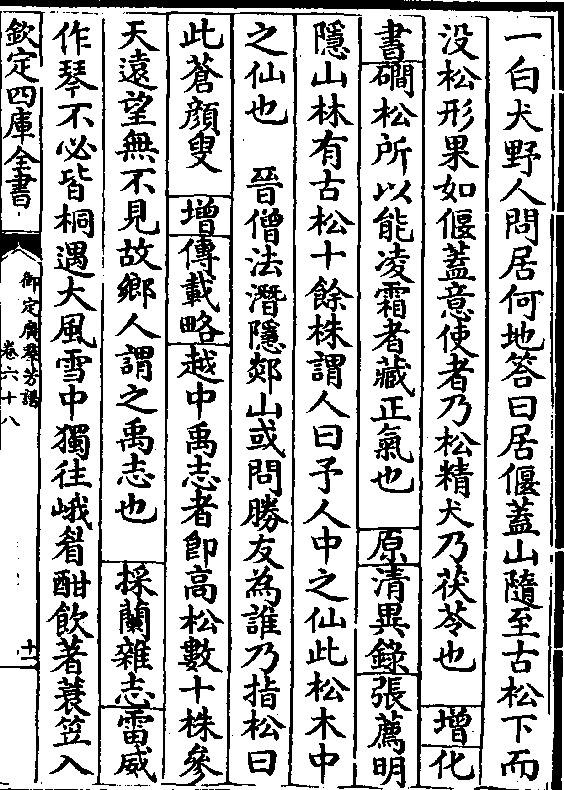 一白犬野人問居何地答曰居偃蓋山隨至古松下而
没松形果如偃蓋意使者乃松精犬乃茯苓也　增化
書磵松所以能凌霜者藏正氣也　原清異錄張薦明
隱山林有古松十餘株謂人曰予人中之仙此松木中
之仙也　晉僧法潛隱郯山或問勝友為誰乃指松曰
此蒼顔叟　增傳載略越中禹志者即高松數十株參
天遠望無不見故鄉人謂之禹志也　採蘭雜志雷威
作琴不必皆桐遇大風雪中獨往峨眉酣飲著蓑笠入
欽定四庫全書
御定廣羣芳譜
卷六十八
十一